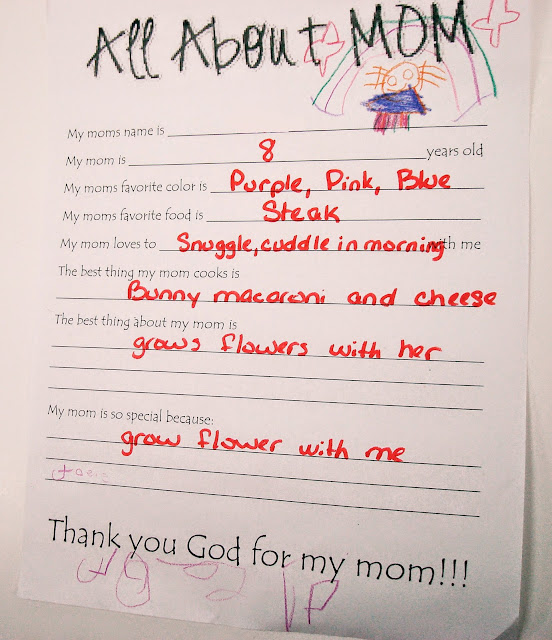 All About MOM
My moms name is
My mom is 8 years old
My moms favorite color is Purple, Pink, Blue
My moms favorite food is Steak
My mom loves to Snuggle, cuddle in morning with me
The best thing my mom cooks is
Bunny macaroni and cheese
The best thing about my mom is
grows flowers with her
My mom is so special because:
grow flower with me
Thank you God for my mom!!!